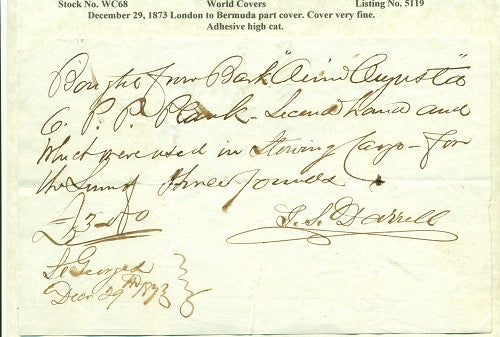 Stock No. WC68 World Covers Listing No. 5119
December 29, 1873 London to Bermuda part cover. Cover very fine.
Adhesive high cat.
Bought from Bark "Aini Augusta"
6. P. P. Plank - Second hand and
which were used in Stowing Cargo - for
the Sum of three pounds
£3-0/0
J. S. Darrell
St Georges
Decr 29th 1873